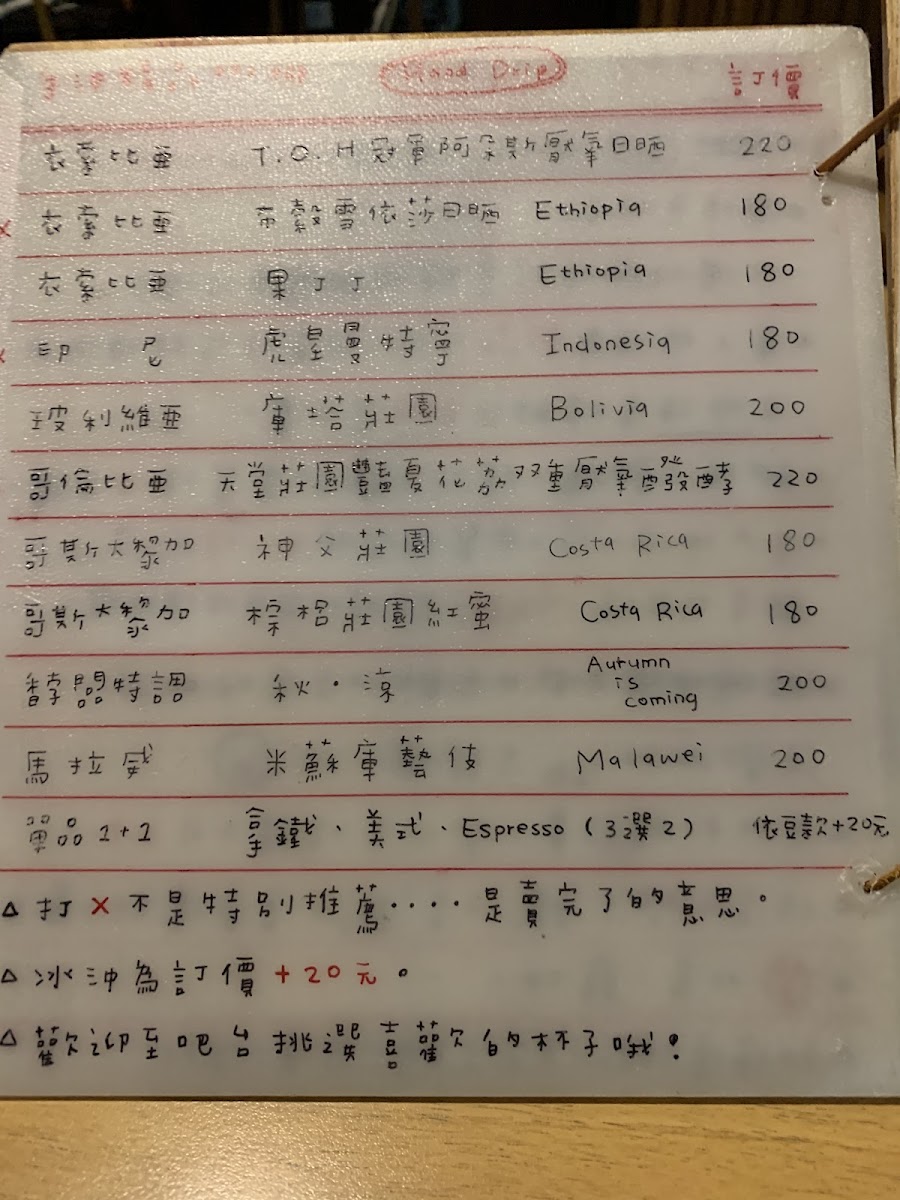 Hand Drip 訂價
衣索比亜 T.O.H冠軍阿朵斯厭氧日晒 220
x 衣索比亜 雪依莎日晒 Ethiopia 180
衣索比亜 果丁丁 Ethiopia 180
x 印尼 虎曼特寧 Indonesia 180
玻利維亜 庫塔莊園 Bolivia 200
哥倫比亜 天堂莊園藍夏花芴双重厭氧發酵 220
哥斯大黎加 神父莊園 Costa Rica 180
哥斯大黎加 棕梠莊園紅蜜 Costa Rica 180
特調 秋・涼 Autumn is coming 200
馬拉威 米蘇庫藝伎 Malawei 200
單品1+1 拿鐵、美式、Espresso (3選2) 依豆款+20元
△ 打 x 不是特別推薦.... 是賣完了的意思。
△ 冰沖為訂價+20元。
△ 歡迎至吧台挑選喜歡的杯子哦!